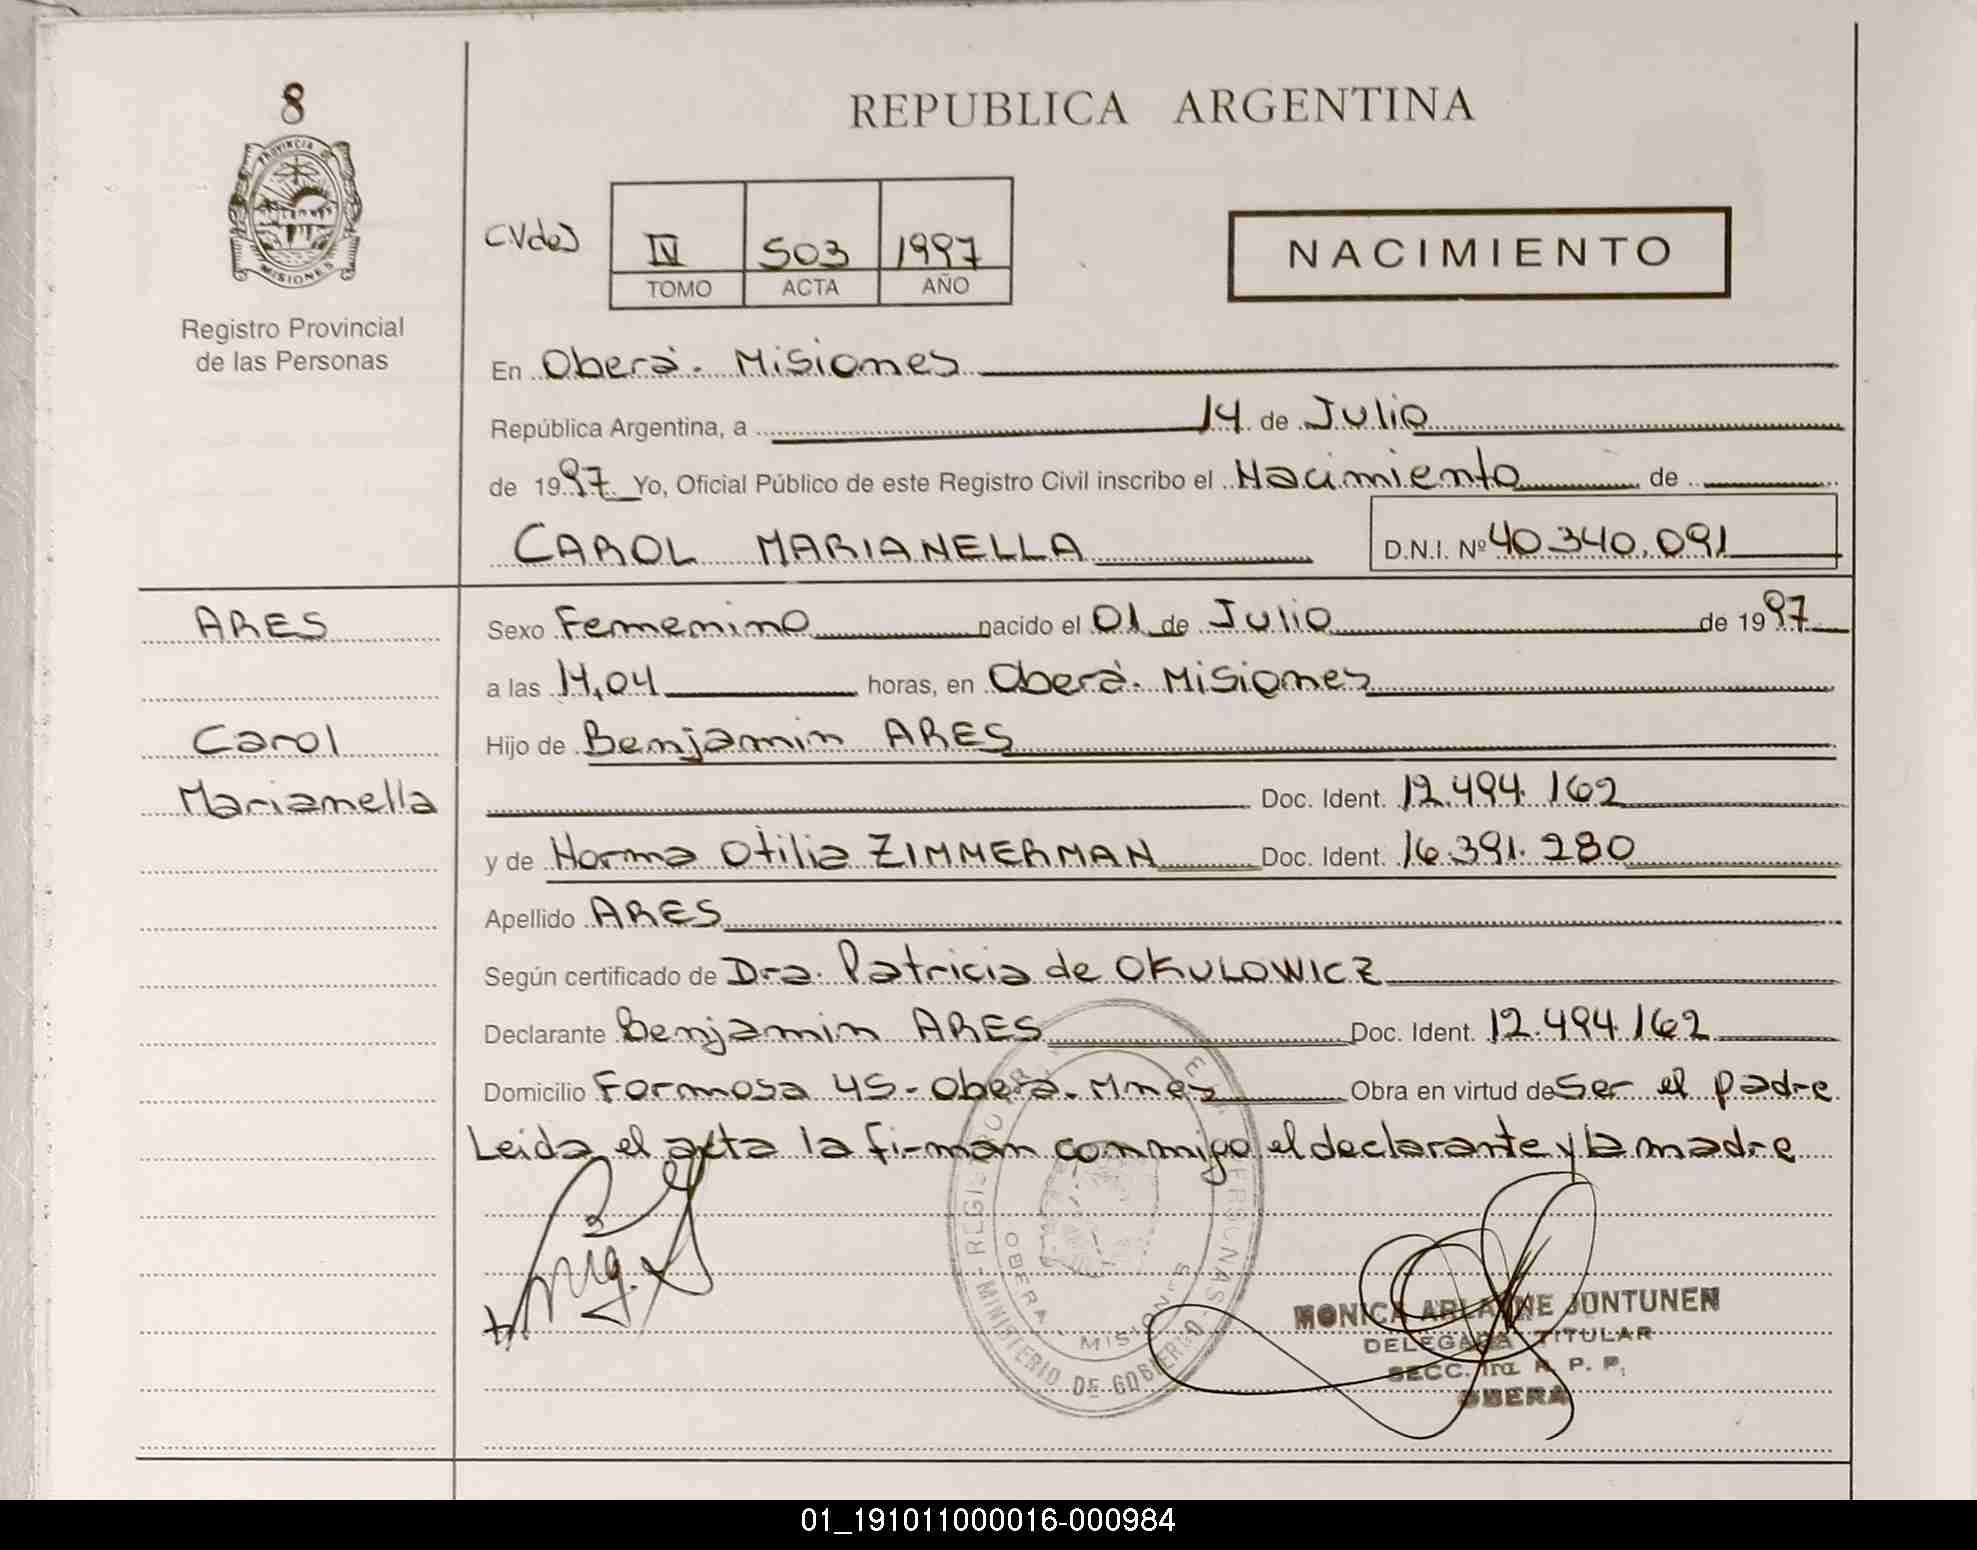 8
PROVINCIA DE
MISIONES
Registro Provincial
de las Personas
REPUBLICA ARGENTINA
IV 503 1997
TOMO ACTA AÑO
NACIMIENTO
En Oberá. Misiones
República Argentina, a 14 de Julio
de 1997 Yo, Oficial Público de este Registro Civil inscribo el Nacimiento de
CAROL MARIANELLA D.N.I. Nº 40.340.091
ARES
Carol
Marianella
Sexo Femenino nacido el 01 de Julio de 1997
a las 14,04 horas, en Oberá. Misiones
Hijo de Benjamin ARES
Doc. Ident. 12.494.162
y de Norma Otilia ZIMMERMAN Doc. Ident. 16.391.280
Apellido ARES
Según certificado de Dra. Patricia de OKULOWICZ
Declarante Benjamin ARES Doc. Ident. 12.494.162
Domicilio Formosa 45-Oberá. Mnes Obra en virtud de Ser el padre
Leida el acta la firman conmigo el declarante y la madre
OBERA MISIONES
MINISTERIO DE GOBIERNO
MONICA ARIANNE JUNTUNEN
DELEGADA TITULAR
SECC. 1ra. R. P. P.
OBERA
01_191011000016-000984